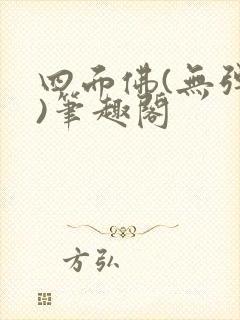 四面佛(無弹
)筆趣閣
方弘